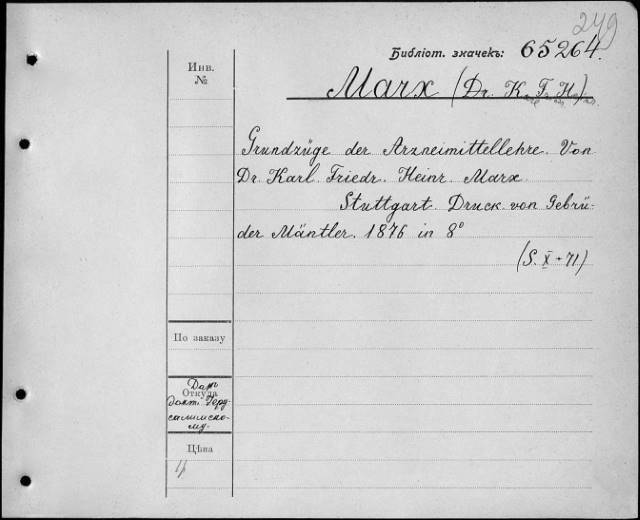 249
Библіот. значекъ: 65264.
Инв.
№
Marx (Dr. K. F. H.)
Grundzüge der Arzneimittellehre. Von
Dr. Karl. Friedr. Heinr. Marx.
Stuttgart. Druck von Gebrü-
der Mäntler. 1876 in 8°
(S. X + 71.)
По заказу
Откуда
Даръ
докт. Геру-
салимско-
му.
Цѣна